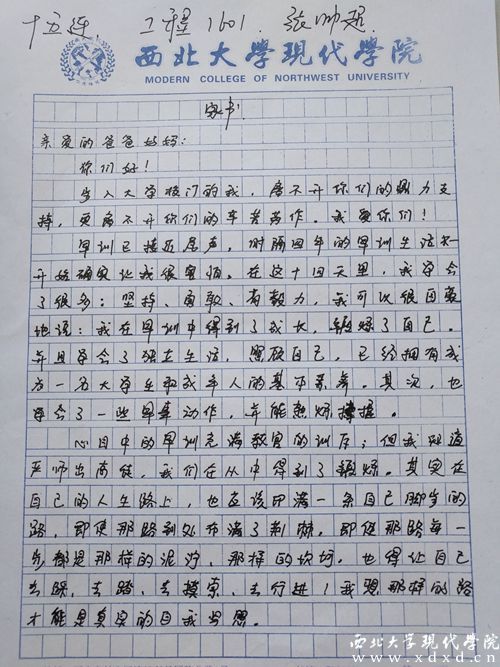 十五连 工程1601. 张帅超.
西北大學現代學院
MODERN COLLEGE OF NORTHWEST UNIVERSITY
家书
亲爱的爸爸妈妈:
你们好!
步入大学校门的我,离不开你们的鼎力支
持,更离不开你们的辛苦劳作。我爱你们!
军训已接近尾声,时隔四年的军训生活一
开始确实让我很害怕。在这十四天里,我学会
了很多:坚持、勇敢、有毅力,我可以很自豪
地说:我在军训中得到了成长,锻炼了自己。
并且学会了独立生活,照顾自己,已经拥有成
为一名大学生和成年人的基本素养。其次,也
学会了一些军事动作,并能熟练掌握。
心目中的军训充满教官的训斥;但我知道
严师出高徒,我们在从中得到了锻炼。其实在
自己的人生路上,也应该印满一条自己脚步的
路,即使那路到处布满了荆棘,即使那路每一
步都是那样的泥泞,那样的坎坷,也得让自己
去踩、去踏、去摸索、去行进!我想那样的路
才能是真实的自我
西北大学现代学院
www.xdxd.cn